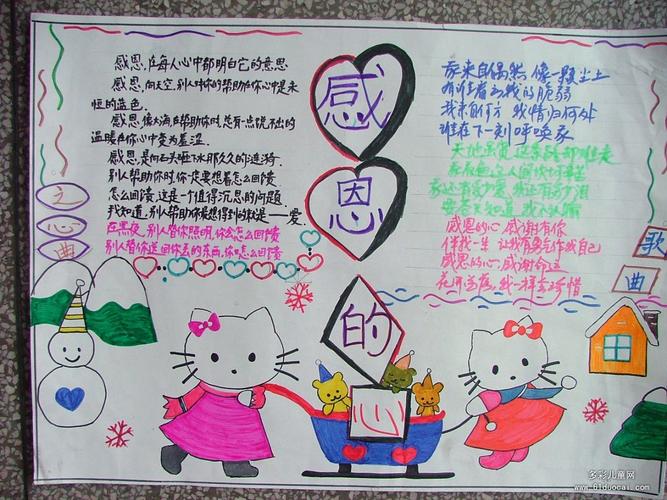 感恩的心
心之曲
感恩,在每人心中都明白它的意思.
感恩,向天空,别人时你的帮助在你心中是永
恒的蓝色.
感恩,像大海,在帮助你时,总有一点说不出的
温暖在你心中变为羞涩.
感恩,是向石头砸下水那久久的涟漪.
别人帮助你时,你一定要想着怎么回馈
怎么回馈,这是个值得沉思的问题.
我知道,别人帮助你最想得到的就是——爱.
在黑夜,别人替你照明,你会怎么回馈
别人替你送回你丢的东西,你怎么回馈
歌曲
我来自偶然 像一颗尘土
有谁看出我的脆弱
我来自何方 我情归何处
谁在下一刻呼唤我
天地虽宽 这条路却难走
我看遍这人间坎坷辛苦
我还有多少爱 我还有多少泪
要苍天知道 我不认输
感恩的心 感谢有你
伴我一生 让我有勇气作我自己
感恩的心 感谢命运
花开花落 我一样会珍惜
多彩儿童网
www.61duocai.com